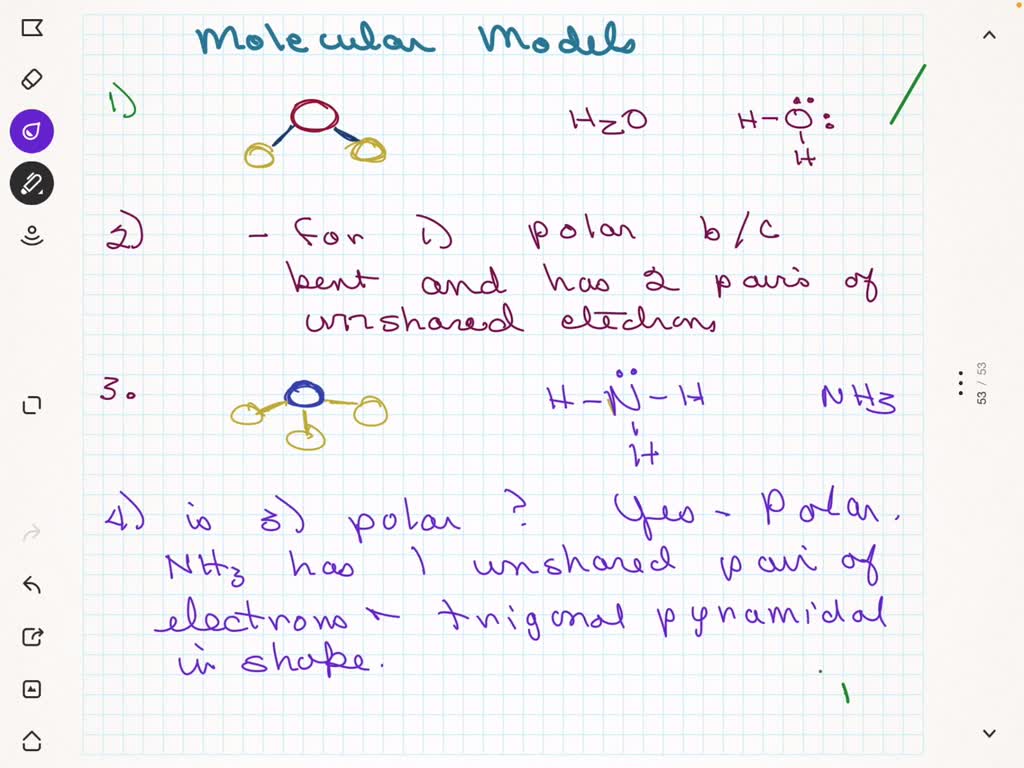 Molecular Models
1)
H2O
H-O
H
2) - for 1) polar b/c
bent and has 2 pairs of
unshared electrons
3.
H-N-H
H
NH3
4) is 3) polar? Yes - Polar.
NH3 has 1 unshared pair of
electrons - trigonal pyramidal
in shape.
53 / 53